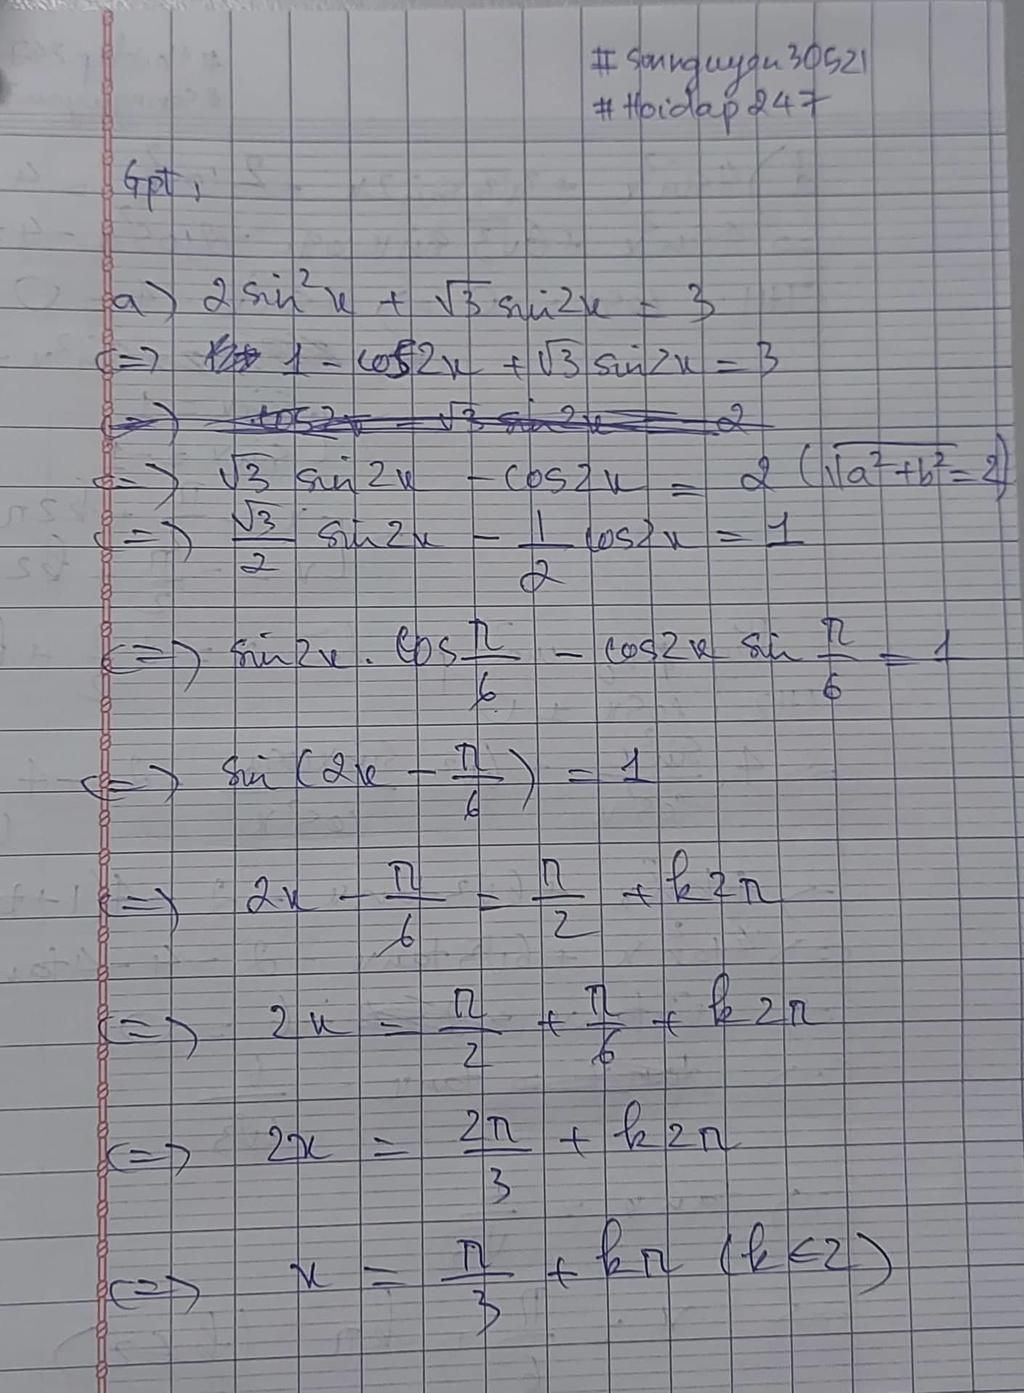 #sonnguyen30521
#Hoidap247
Gpt:
a) 2sin²x + √3 sin2x = 3
<=> 1 - cos2x + √3 sin2x = 3
<=> cos2x - √3 sin2x = 2
<=> √3 sin2x - cos2x = 2 (√a²+b² = 2)
<=> √3/2 sin2x - 1/2 cos2x = 1
<=> sin2x . cos π/6 - cos2x sin π/6 = 1
<=> sin(2x - π/6) = 1
<=> 2x - π/6 = π/2 + k2π
<=> 2x = π/2 + π/6 + k2π
<=> 2x = 2π/3 + k2π
<=> x = π/3 + kπ (k∈Z)